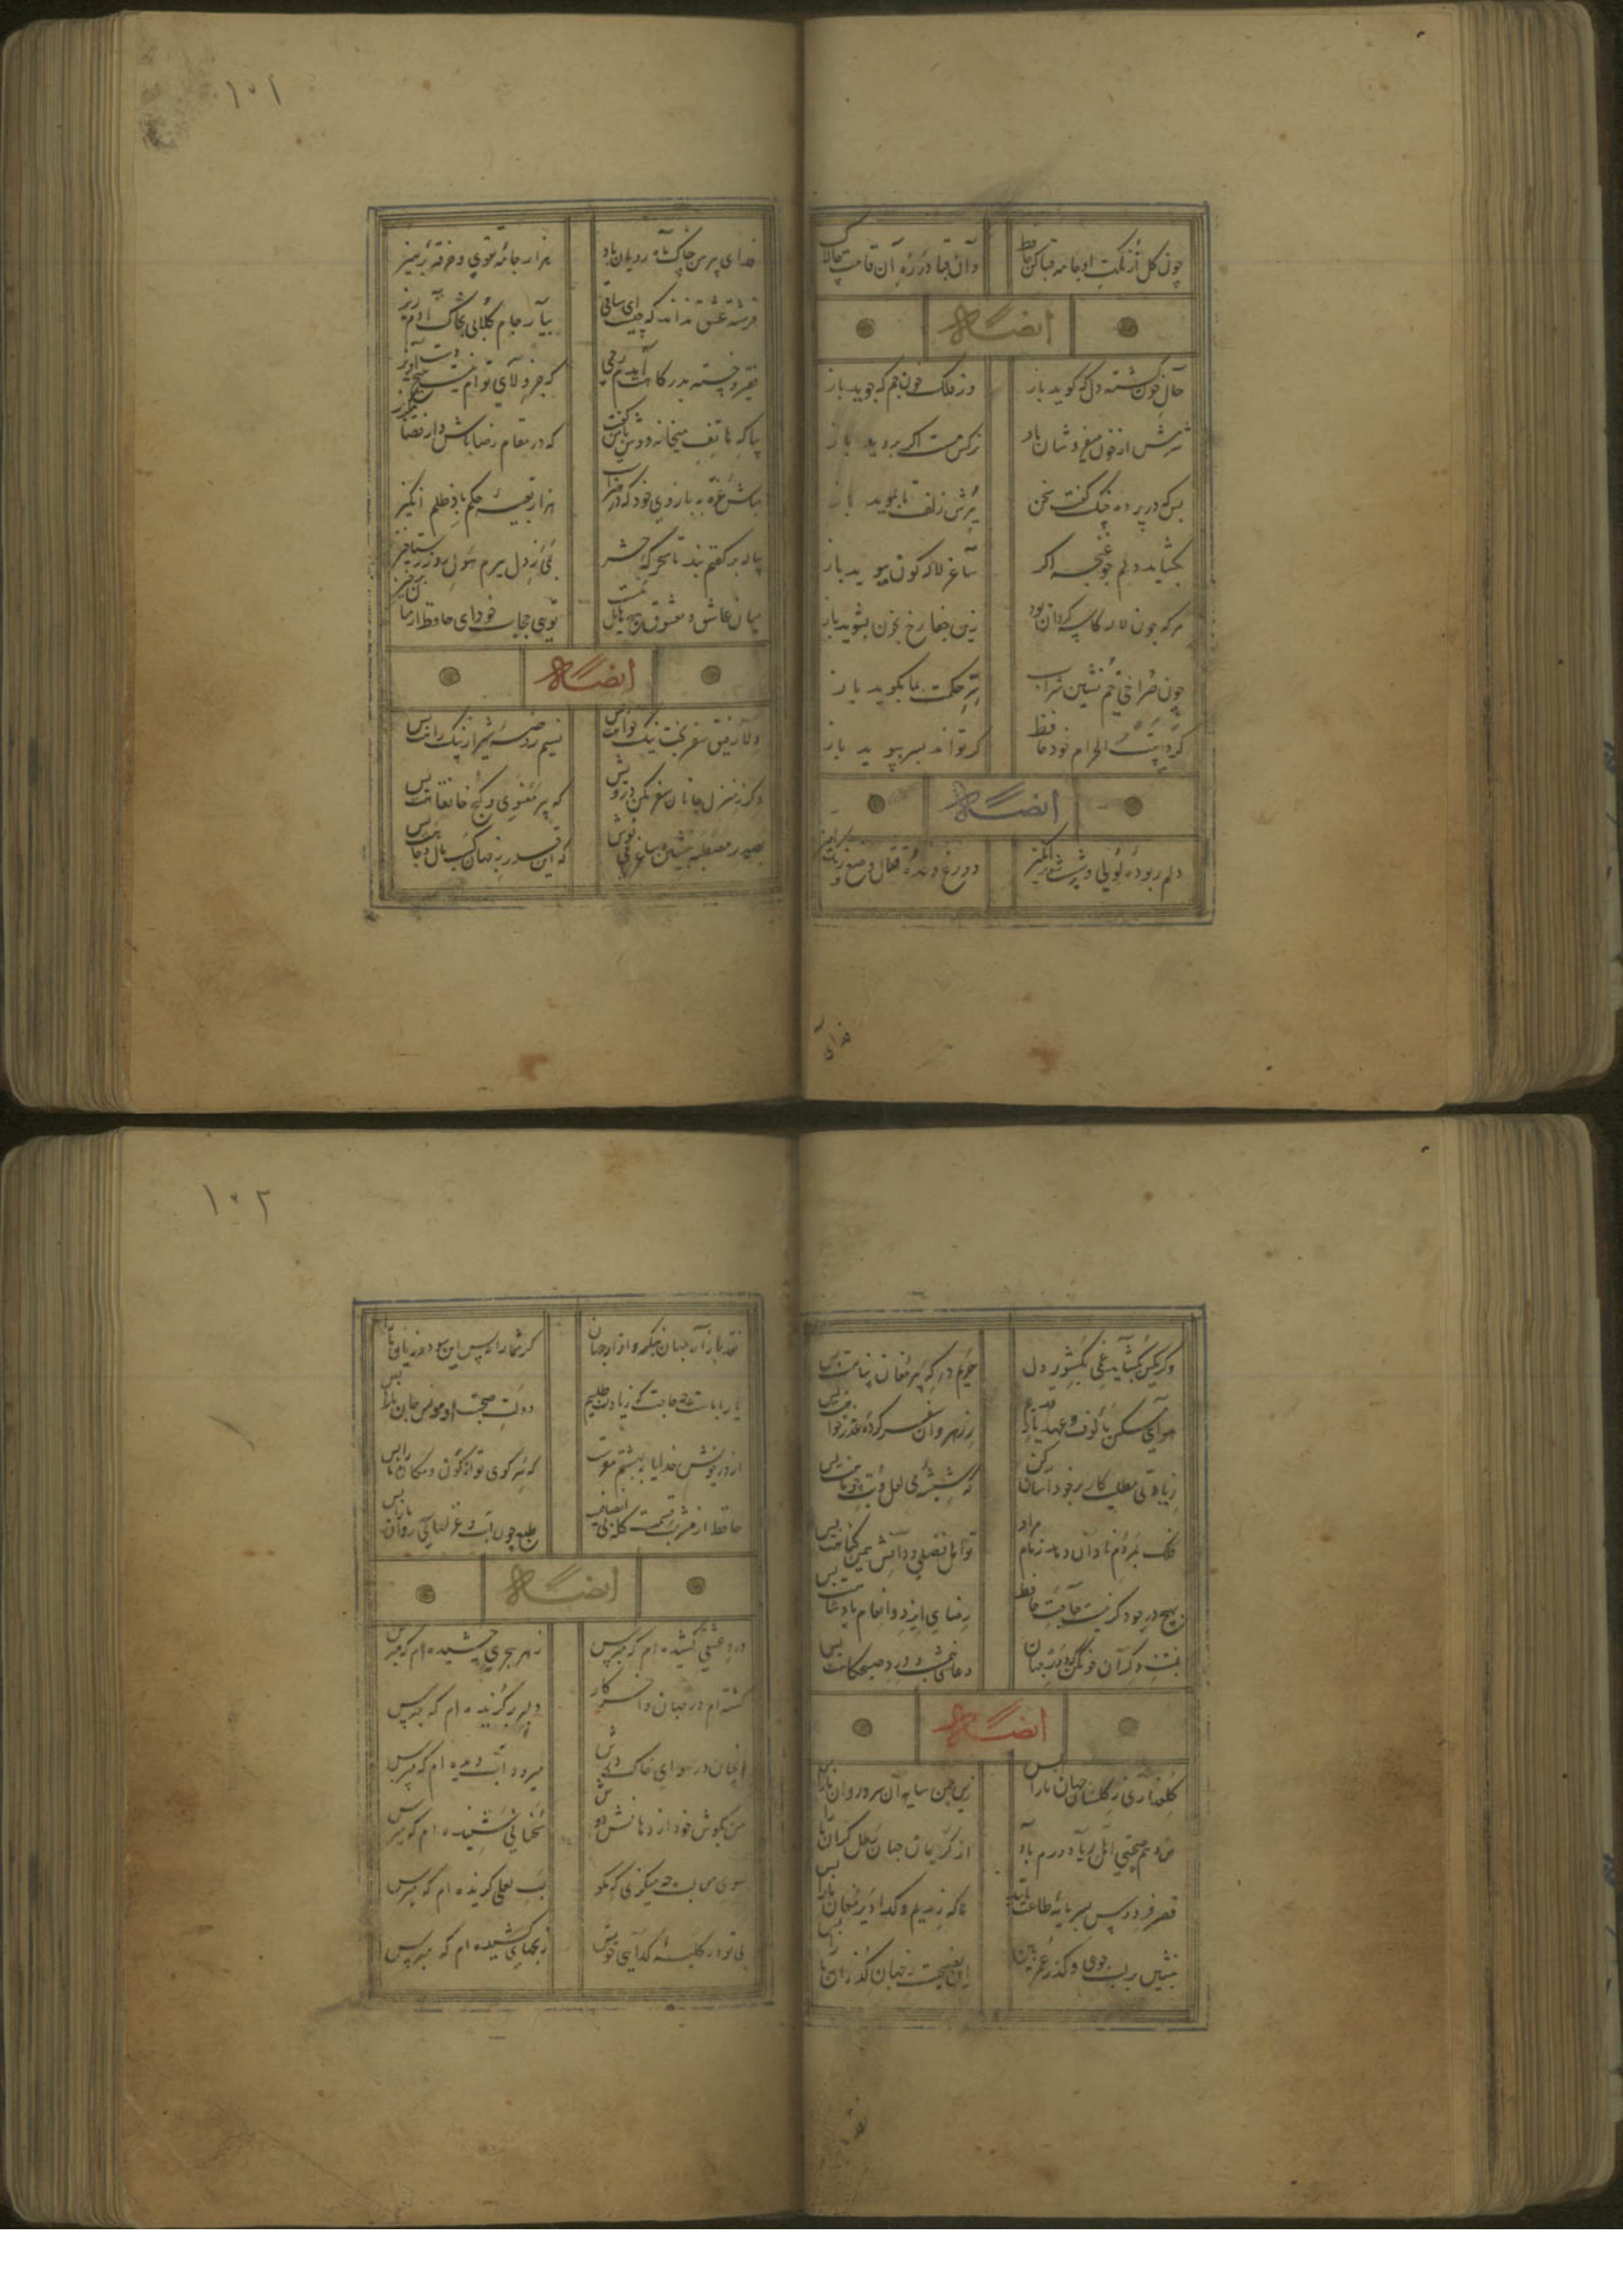 چون گل از نکهت او جامه قبا کن حافظ
وآن قبا در ره آن قامت چالاک
ایضاً له
حال خون گشته دل که گوید باز
وز فلک خون جم که جوید باز
شرمش از خون می فروشان باد
نرگس مست اگر بروید باز
بس که در پرده چنگ گفت سخن
ببرش زلف تا نموید باز
بگشاید دلم چو غنچه اگر
ساغر لاله گون ببوید باز
هر که چون لاله کاسه گردان بود
زین جفا رخ بخون بشوید باز
چون فراخی خم نشین شراب
سر حکمت بما بگوید باز
گرد بیت الحرام خود حافظ
گر تواند بسر بپوید باز
ایضاً له
دلم ربوده لولی وشیست شورانگیز
دروغ وعده و قتال وضع و رنگ آمیز
فدای
۱۰۱
فدای پیرهن چاک ماه رویان باد
هزار جامه تقوی و خرقه پرهیز
فرشته عشق نداند که چیست ای ساقی
بیار جام گلابی بخاک آدم ریز
فقیر و خسته بدرگاهت آمدم رحمی
که جز ولای توام نیست هیچ دست آویز
بیا که هاتف میخانه دوش با من گفت
که در مقام رضا باش و از قضا مگریز
مباش غره ببازوی خود که در خبرست
هزار تعبیه حکم پادشه انگیز
پیاله بر کفنم بند تا سحرگه حشر
بمی ز دل ببرم هول روز رستاخیز
میان عاشق و معشوق هیچ حایل نیست
تویی حجاب خودای حافظ از میان برخیز
ایضاً له
دلا رفیق سفر بخت نیک خواهت بس
نسیم روضه شیراز پیک راهت بس
دگر ز منزل جانان سفر مکن درویش
که سیر معنوی و کنج خانقاهت بس
بصدر مصطبه بنشین و ساغر می نوش
که این قدر ز جهان کسب مال و جاهت بس
وگر کمین بگشاید غمی ز گوشه دل
حریم درگه پیر مغان پناهت بس
هوای مسکن مألوف و عهد یار قدیم
ز رهروان سفر کرده عذر خواهت بس
زیادتی مطلب کار بر خود آسان کن
که شیشه می لعل و بتی چو ماهت بس
فلک بمردم نادان دهد زمام مراد
تو اهل فضلی و دانش همین گناهت بس
بهیچ ورد دگر نیست حاجت حافظ
رضای ایزد و انعام پادشاهت بس
بمنت دگران خو مکن که در دو جهان
دعای نیمشب و درد صبحگاهت بس
ایضاً له
گلعذاری ز گلستان جهان ما را بس
زین چمن سایه آن سرو روان ما را بس
من و هم صحبتی اهل ریا دورم باد
از گرانان جهان رطل گران ما را بس
قصر فردوس بپر مایه طاعت
ما که رندیم و گدا دیر مغان ما را بس
بنشین بر لب جوی و گذر عمر ببین
این نصیحت ز جهان گذران ما را بس
نقد
۱۰۲
نقد بازار جهان بنگر و آزار جهان
گر شما را نه بس این سود و زیان ما را بس
یار با ماست چه حاجت که زیادت طلبیم
دولت صحبت او مونس جان ما را بس
از در خویش خدایا به بهشتم مفرست
که سر کوی تو از کون و مکان ما را بس
حافظ از مشرب قسمت گله بی انصافیست
طبع چون آب و غزلهای روان ما را بس
ایضاً له
درد عشقی کشیده ام که مپرس
زهر هجری چشیده ام که مپرس
گشته ام در جهان و آخر کار
دلبری برگزیده ام که مپرس
آنچنان در هوای خاک درش
میرود آب دیده ام که مپرس
من بگوش خود از دهانش دوش
سخنانی شنیده ام که مپرس
سوی من لب چه میگزی که مگو
لب لعلی گزیده ام که مپرس
بی تو در کلبه گدایی خویش
رنجهایی کشیده ام که مپرس